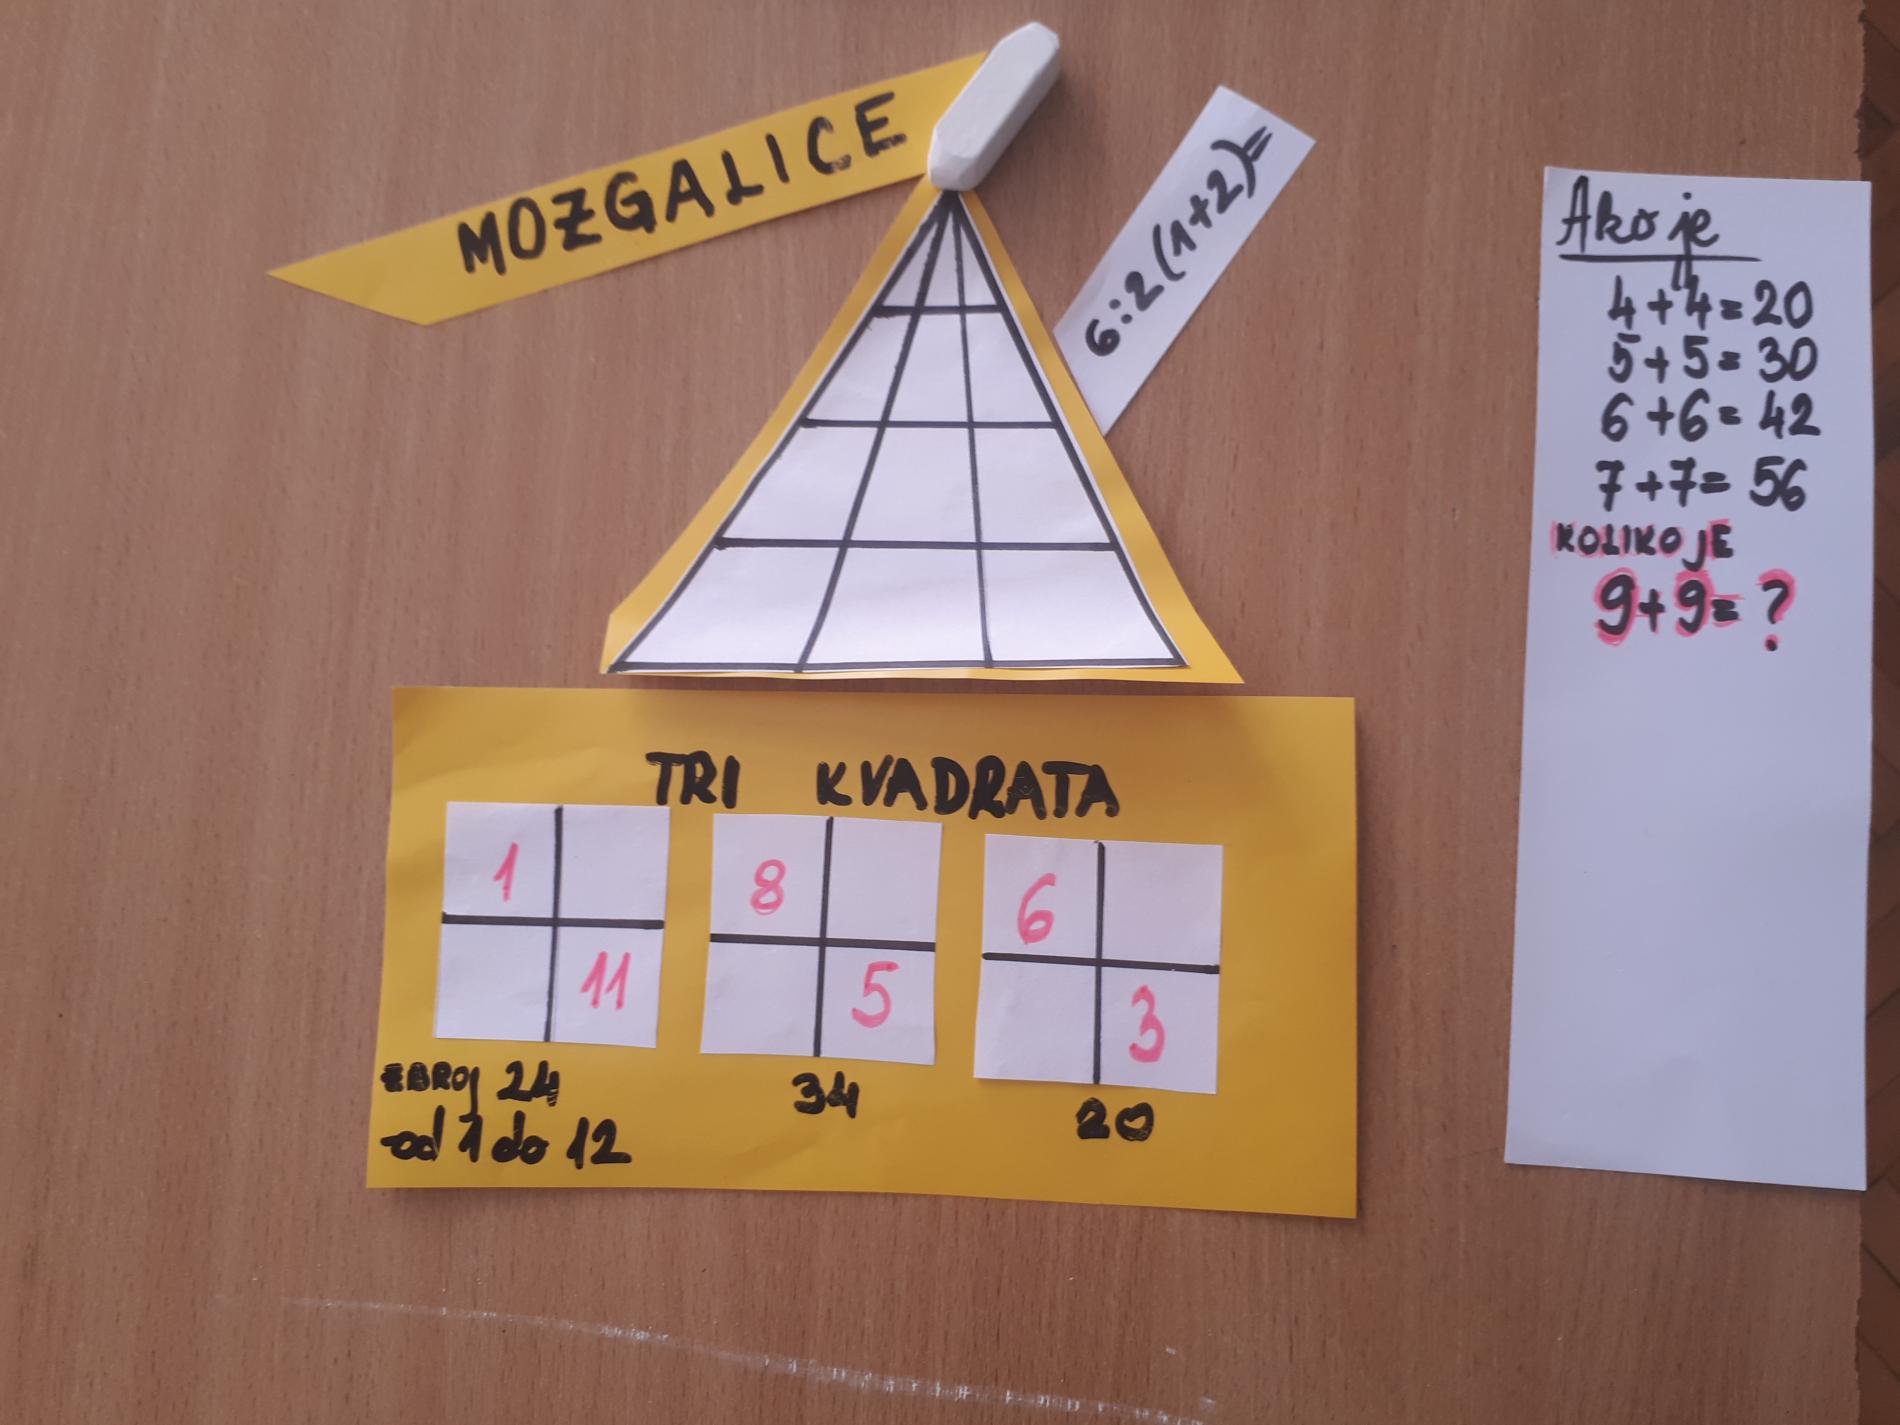 MOZGALICE
6:2(1+2)=
Ako je
4+4=20
5+5=30
6+6=42
7+7=56
KOLIKO JE
9+9=?
TRI KVADRATA
1
11
8
5
6
3
ZBROJ 24
od 1 do 12
34
20